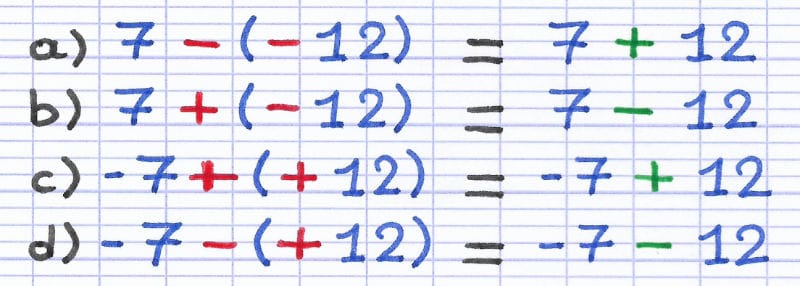 a) 7 - (- 12) = 7 + 12
b) 7 + (- 12) = 7 - 12
c) -7 + (+ 12) = -7 + 12
d) -7 - (+ 12) = -7 - 12